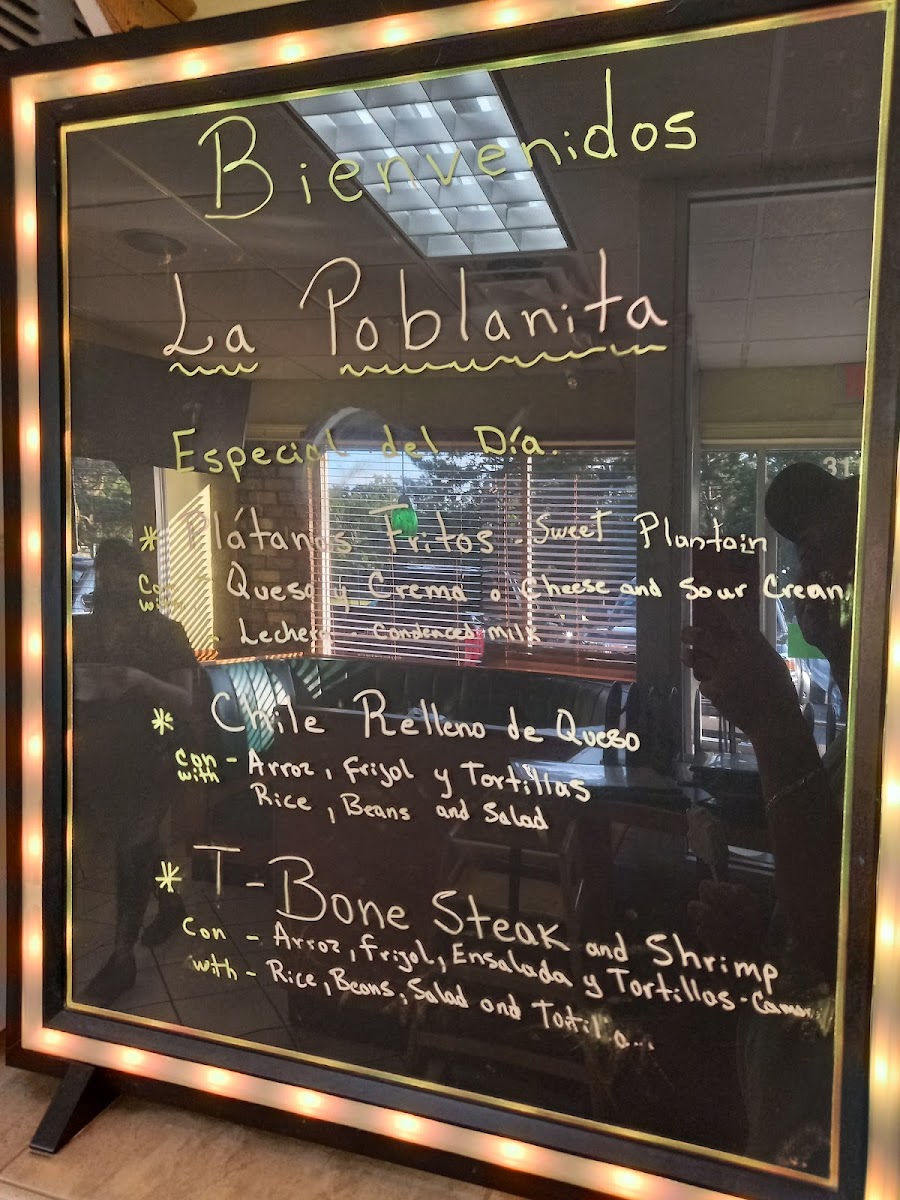 Bienvenidos
La Poblanita
Especial del Día.
* Plátanos Fritos - Sweet Plantain
Queso y Crema o Cheese and Sour Cream
- Lechera - Condenced milk
* Chile Relleno de Queso
con - Arroz, frijol y Tortillas
with Rice, Beans and Salad
* T-Bone Steak and Shrimp
Con - Arroz, frijol, Ensalada y Tortillas -
with - Rice, Beans, Salad and
31